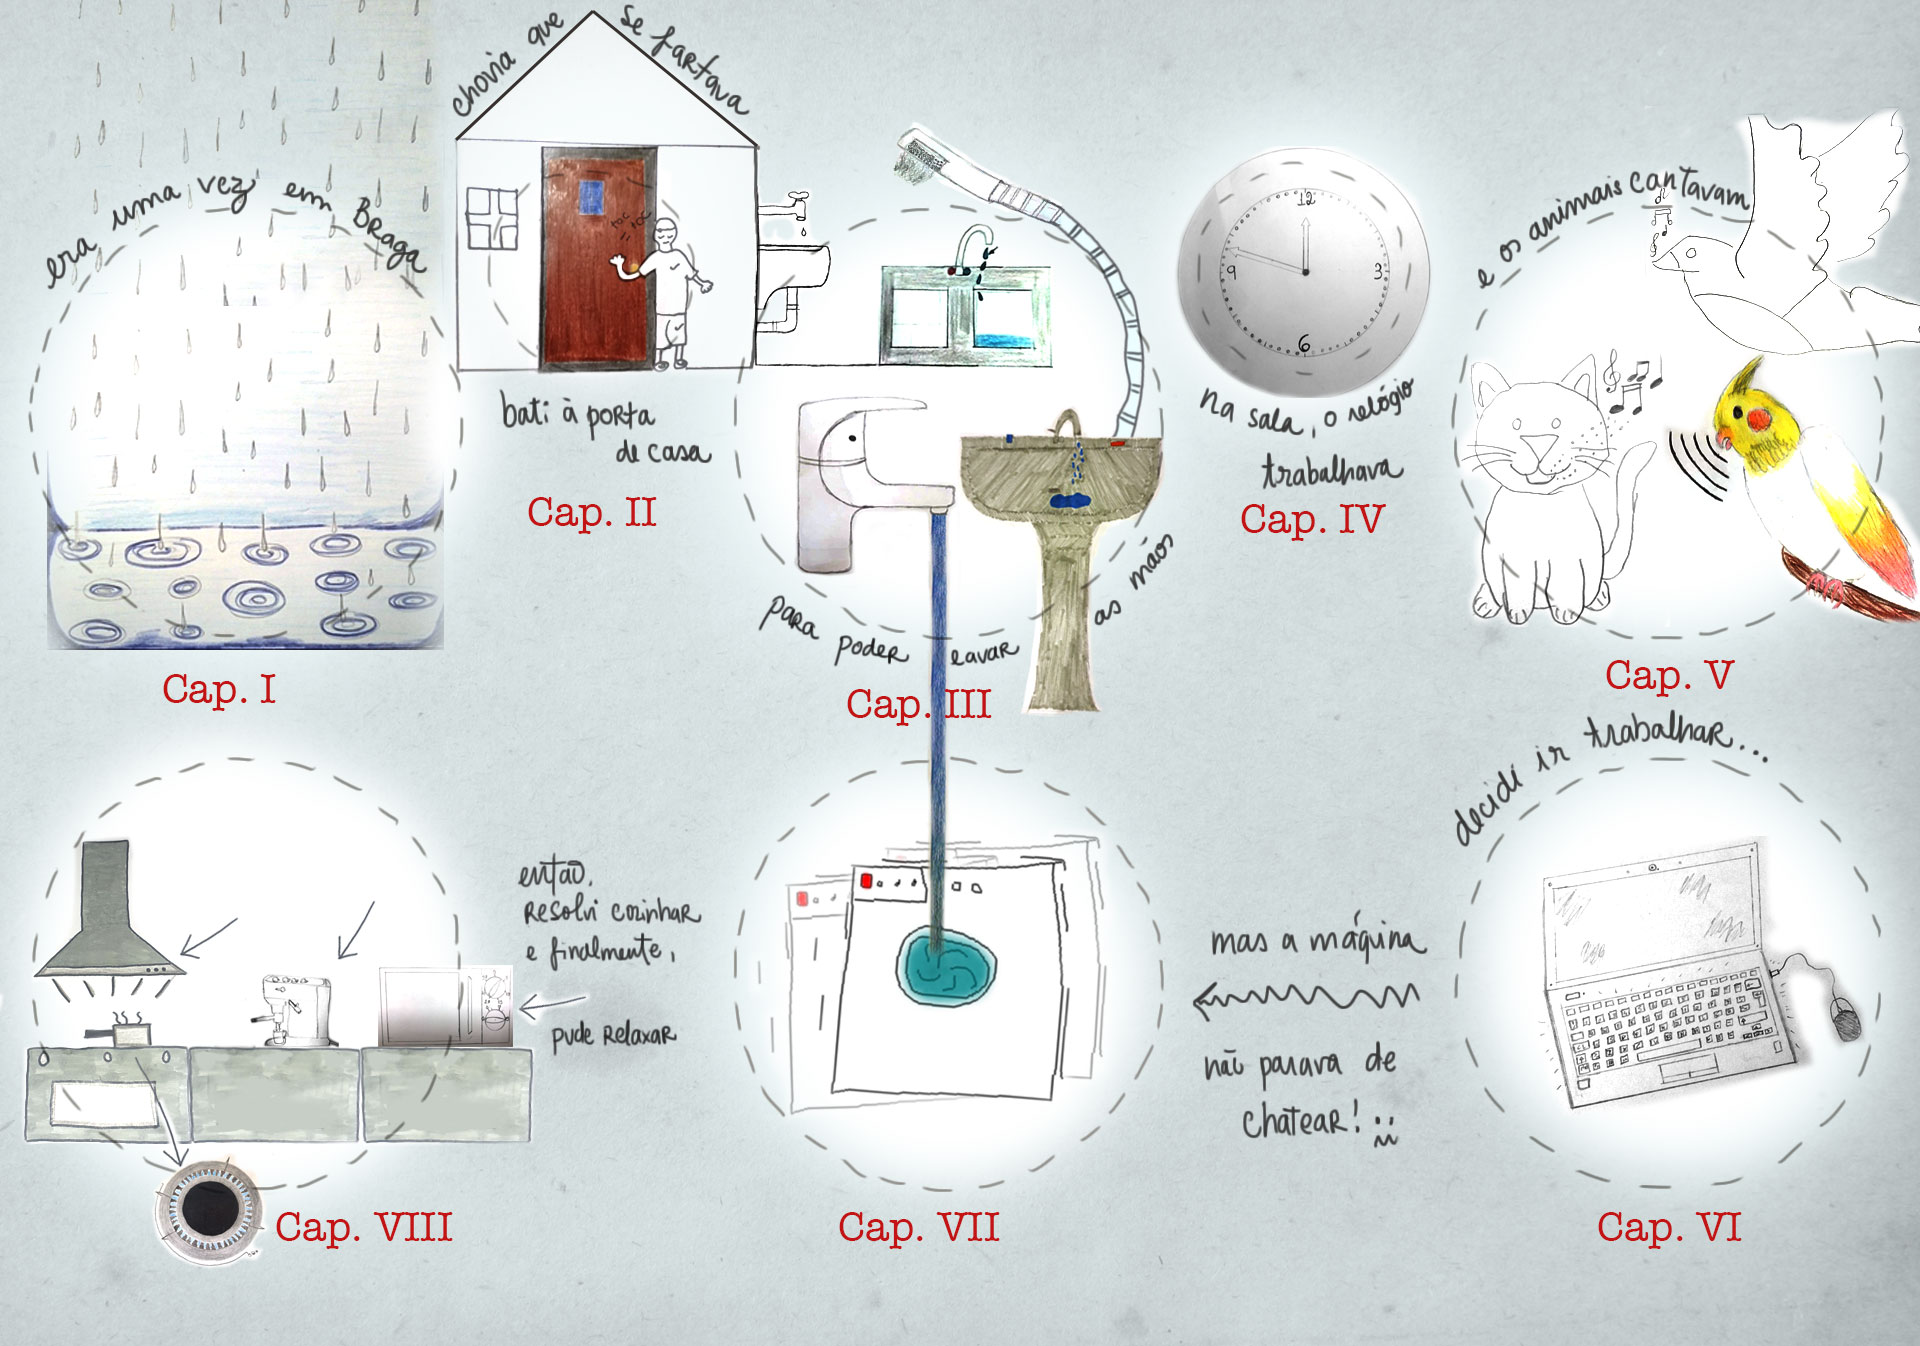 era uma vez em Braga
Cap. I
chovia que se fartava
toc
toc
bati à porta
de casa
Cap. II
para poder lavar as mãos
Cap. III
12
3
6
9
na sala, o relógio
trabalhava
Cap. IV
e os animais cantavam
Cap. V
decidi ir trabalhar...
Cap. VI
mas a máquina
não parava de
chatear!
Cap. VII
então,
resolvi cozinhar
e finalmente,
pude relaxar
Cap. VIII